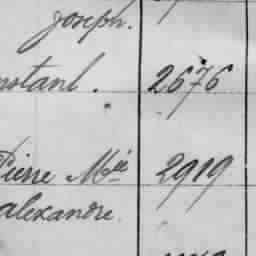 Joseph.
nstant. 2676
Pierre M^ie 2919
alexandre.